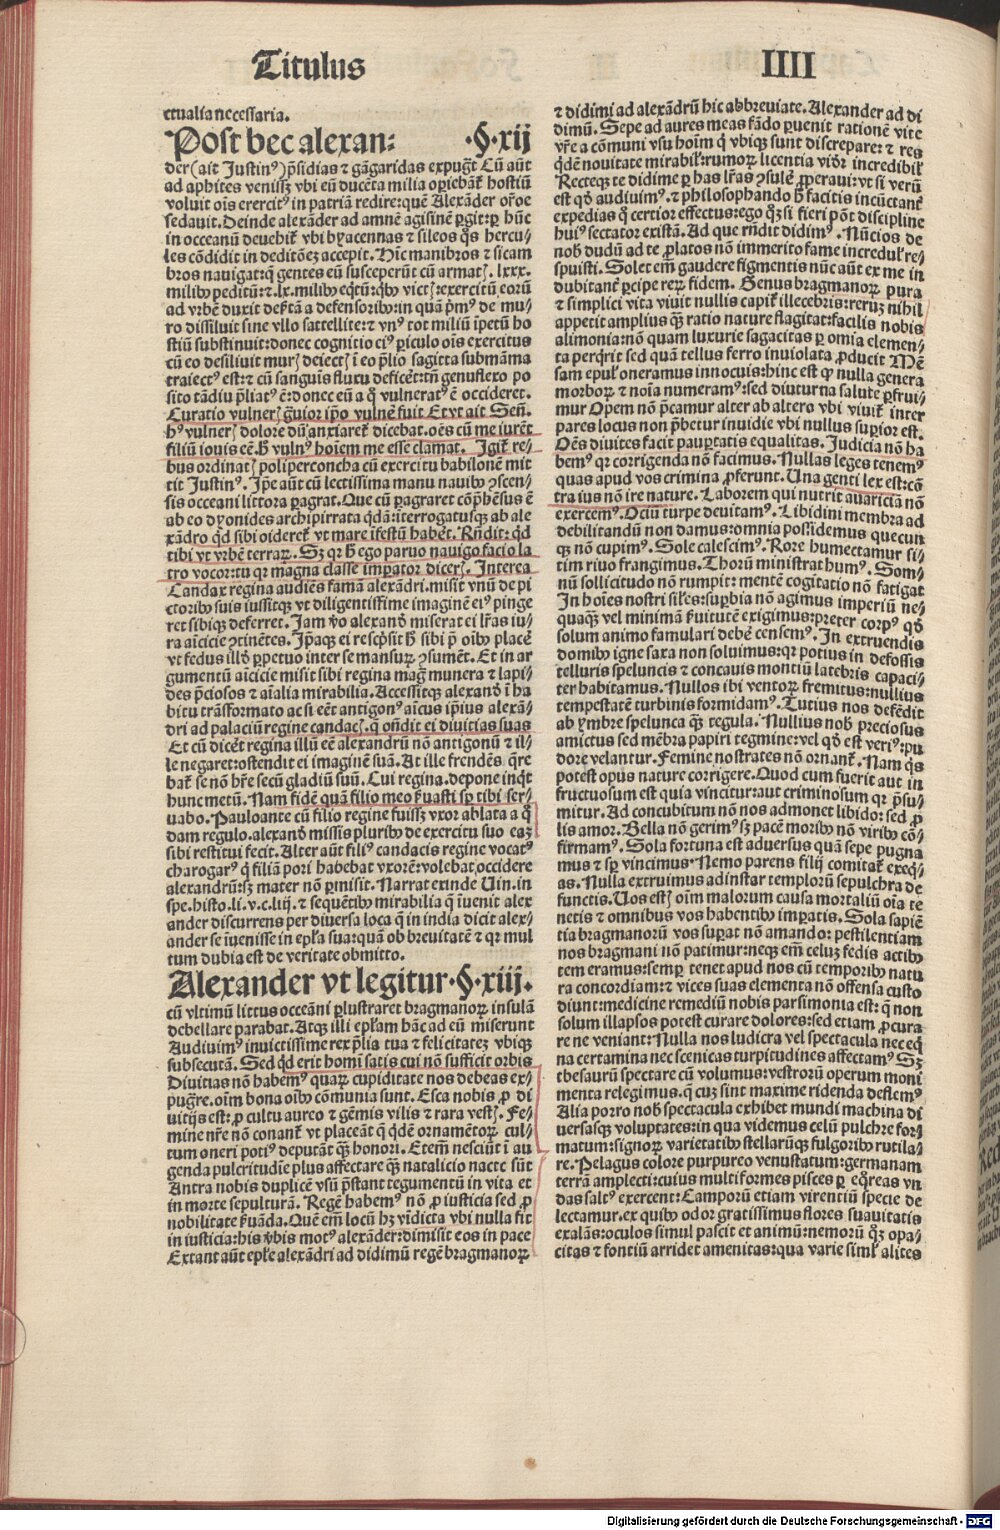 Titulus IIII
ctualia necessaria.
Post hec alexan: ·§·xij
der (ait Justinꝰ) p̄sidias ⁊ gāgaridas expug̃t Cū aūt
ad aphites venissꝫ vbi eū ducēta milia oꝑiebāt̃ hostiū
voluit oīs exercitꝰ in patriā redire: quē Alexāder or̃oe
sedauit. Deinde alexāder ad amnē agisinē ꝑgit: ꝑ hūc
in occeanū deuehit̃ vbi hyacennas ⁊ sileos q̄s hercu/
les cōdidit in deditōeꝫ accepit. Hīc manibros ⁊ sicam
bros nauigat: q̄ gentes eū susceperūt cū armatꝭ. lxxx.
milibꝰ peditū: ⁊. lx. milibꝰ eq̄tū: q̄bꝰ victꝭ: exercitū eorū
ad vrbē duxit deẜtā a defensoribꝰ: in qua p̄mꝰ de mu/
ro dissiluit sine vllo sattellite: ⁊ vnꝰ tot miliū īpetū ho
stiū substinuit: donec cognitio eiꝰ ꝑiculo oīs exercitus
cū eo desiliuit murꝭ deiectꝭ ī eo p̄lio sagitta submāma
traiectꝰ est: ⁊ cū sanguīs fluxu deficēt: tn̄ genuflexo po
sito tādiu p̄liatꝰ ē: donec eū a q̊ vulneratꝰ ē occideret.
Curatio vulnerꝭ g̃uior ip̄o vulnē fuit Et vt ait Señ.
hꝰ vulnerꝭ dolore dū anxiaret̃ dicebat. oēs cū me iurēt
filiū iouis eē. h̄ vulnꝰ hoīem me esse clamat. Igit̃ re/
bus ordinatꝭ poliperconcha cū exercitu babilonē mit
tit Justinꝰ. Ip̄e aūt cū lectissima manu nauiū ꝯscen/
sis occeani littora ꝑagrat. Que cū ꝑagraret cōp̄hēsus ē
ab eo dyonides archipirrata q̄dā: īterrogatusqꝫ ab ale
xādro qd̄ sibi oideret̃ vt mare īfestū habēt. Rn̄dit: qd̄
tibi vt vrbē terraꝝ. Sꝫ qꝛ h̄ ego paruo nauigo facio la
tro vocor: tu qꝛ magna classe imꝑator dicerꝭ. Interea
Candax regina audiēs famā alexādri. misit vnū de pi
ctoribꝰ suis iussitqꝫ vt diligentissime imaginē eiꝰ pinge
ret sibiqꝫ deferret. Jam v̊o alexand̊ miserat ei lr̄as iu/
ra aīcicie ꝯtinētes. Ip̄aqꝫ ei resc̄psit h̄ sibi p̄ oībꝰ placē
vt fedus illd̊ ꝑpetuo inter se mansuꝝ ꝯsumēt. Et in ar
gumentū aīcicie misit sibi regina mag̃ munera ⁊ lapi/
des p̄ciosos ⁊ aīalia mirabilia. Accessitqꝫ alexand̊ ī ha
bitu trāsformato ac si eēt antigonꝰ aīcus ip̄ius alexā/
dri ad palaciū regine candacꝭ. q̄ on̄dit ei diuitias suas
Et cū dicēt regina illū eē alexandrū nō antigonū ⁊ il/
le negaret: ostendit ei imaginē suā. At ille frendēs q̄re
bat̃ se nō hr̄e secū gladiū suū. Cui regina. depone inq̄t
hunc metū. Nam fidē quā filio meo ẜuasti sp̄ tibi ser/
uabo. Pauloante cū filio regine fuissꝫ vxor ablata a q̊
dam regulo. alexand̊ missis pluribꝰ de exercitu suo eaꝫ
sibi restitui fecit. Alter aūt filiꝰ candacis regine vocatꝰ
charogarꝰ q̄ filiā pori habebat vxorē: volebat occidere
alexandrū: sꝫ mater nō ꝑmisit. Narrat exinde Uin. in
spe. histo. li. v. c. liij. ⁊ sequētibꝰ mirabilia q̄ īuenit alex
ander discurrens per diuersa loca q̄ in india dicit alex/
ander se īuenisse in epl̄a sua: quā ob breuitatē ⁊ qꝛ mul
tum dubia est de veritate obmitto.
Alexander vt legitur·§·xiij.
cū vltimū littus occeāni ꝑlustraret bragmanoꝝ insulā
debellare parabat. Atqꝫ illi epl̄am hāc ad eū miserunt
Audiuimꝰ inuictissime rex p̄lia tua ⁊ felicitateꝫ vbiqꝫ
subsecutā. Sed qd̄ erit homī satis cui nō sufficit orbis
Diuitias nō habemꝰ quaꝝ cupiditate nos debeas ex/
pug̃re. oīm bona oībꝰ cōmunia sunt. Esca nobis ꝓ di
uitijs est: ꝓ cultu aureo ⁊ gēmis vilis ⁊ rara vestꝭ. Fe/
mine nr̄e nō conant̃ vt placeāt q̄ qdē ornamētoꝝ cul/
tum oneri potiꝰ deputāt qꝫ honori. Etem̄ nesciūt ī au
genda pulcritudīe plus affectare qꝫ natalicio nacte sūt
Antra nobis duplicē vsū p̄stant tegumentū in vita et
in morte sepulturā. Regē habemꝰ nō ꝓ iusticia sed ꝓ
nobilitate ẜuāda. Quē em̄ locū hꝫ vīdicta vbi nulla fit
in iusticia: his v̄bis motꝰ alexāder: dimisit eos in pace
Extant aūt epl̄e alexādri ad didimū regē bragmanoꝝ
⁊ didimi ad alexādrū hic abbreuiate. Alexander ad di
dimū. Sepe ad aures meas fādo ꝑuenit rationē vite
vr̄e a cōmuni vsu hoīm q̄ vbiqꝫ sunt discrepare: ⁊ res
qdē nouitate mirabil̄: rumoꝝ licentia vid̄r incredibil̄
Recteqꝫ te didime ꝑ has lr̄as ꝯsulē ꝓperaui: vt si verū
est qd̄ audiuimꝰ. ⁊ philosophando h̄ facitis incūctant̃
expedias q̄ certior effectus: ego qꝫ si fieri pōt discipline
huiꝰ sectator existā. Ad que rn̄dit didimꝰ. Nūcios de
nob̄ dudū ad te ꝓlatos nō immerito fame incredul̄ re/
spuisti. Solet em̄ gaudere figmentis nūc aūt ex me in
dubitant̃ ꝑcipe reꝝ fidem. Genus bragmanoꝝ pura
⁊ simplici vita viuit nullis capit̃ illecebris: reruꝫ nihil
appetit amplius qꝫ ratio nature flagitat: facilis nobis
alimonia: nō quam luxurie sagacitas ꝑ omīa elemen/
ta perq̄rit sed quā tellus ferro inuiolata ꝓducit Mē
sam epul̄ oneramus innocuis: hinc est qꝫ nulla genera
morboꝝ ⁊ noīa numeramꝰ: sed diuturna salute ꝑfrui/
mur Opem nō p̄camur alter ab altero vbi viuit̃ inter
pares locus non p̄betur inuidie vbi nullus suꝑior est.
Oēs diuites facit pauꝑtatis equalitas. Judicia nō ha
bemꝰ qꝛ corrigenda nō facimus. Nullas leges tenemꝰ
quas apud vos crimina ꝓferunt. Una genti lex est: cō
tra ius nō ire nature. Laborem qui nutrit auariciā nō
exercemꝰ. Ociū turpe deuitamꝰ. Libidini membra ad
debilitandū non damus: omnia possidemus quecun
qꝫ nō cupimꝰ. Sole calescimꝰ. Rore humectamur si/
tim riuo frangimus. Thorū ministrat humꝰ. Som/
nū sollicitudo nō rumpit: mentē cogitatio nō fatigat
In hoīes nostri sil̄es: suꝑbia nō agimus imperiū ne/
quaqꝫ vel minimā ẜuitutē exigimus: preter corpꝰ qd̄
solum animo famulari debē censemꝰ. In extruendis
domibꝰ igne saxa non soluimus: qꝛ potius in defossis
telluris speluncis ⁊ concauis montiū latebris capaci/
ter habitamus. Nullos ibi ventoꝝ fremitus: nullius
tempestatē turbinis formidamꝰ. Tutius nos defēdit
ab ymbre spelunca qꝫ tegula. Nullius nob̄ preciosus
amictus sed mēbra papiri tegmine: vel qd̄ est veriꝰ: pu
dore velantur. Femine nostrates nō ornant̃. Nam q̄s
potest opus nature corrigere. Quod cum fuerit aut in
fructuosum est quia vincitur: aut criminosum qꝛ p̄su/
mitur. Ad concubitum nō nos admonet libido: sed ꝓ
lis amor. Bella nō gerimꝰ sꝫ pacē moribꝰ nō viribꝰ cō/
firmamꝰ. Sola fortuna est aduersus quā sepe pugna
mus ⁊ sp̄ vincimus. Nemo parens filij comitat̃ exeq̄/
as. Nulla extruimus ad instar templorū sepulchra de
functis. Uos estꝭ oīm malorum causa mortaliū oīa te
netis ⁊ omnibus vos habentibꝰ imꝑatis. Sola sapiē
tia bragmanorū vos suꝑat nō amando: pestilentiam
nos bragmani nō patimur: neqꝫ em̄ celuꝫ fedis actibꝰ
tem eramus: semꝑ tenet apud nos cū temporibꝰ natu
ra concordiam: ⁊ vices suas elementa nō offensa custo
diunt: medicine remediū nobis parsimonia est: q̄ non
solum illapsos potest curare dolores: sed etiam ꝓcura
re ne veniant: Nulla nos ludicra vel spectacula nec eq̄
na certamina nec scenicas turpitudines affectamꝰ Sꝫ
thesaurū spectare cū volumus: vestrorū operum moni
menta relegimus. q̄ cuꝫ sint maxime ridenda deflemꝰ
Alia porro nob̄ spectacula exhibet mundi machina di
uersasqꝫ voluptates: in qua videmus celū pulchre for/
matum: signoꝝ varietatibꝰ stellarūqꝫ fulgoribꝰ rutila/
re. Pelagus colore purpureo venustatum: germanam
terrā amplecti: cuius multiformes pisces ꝑ eq̊reas vn
das saltꝰ exercent: Camporū etiam virentiū specie de
lectamur. ex quibꝰ odor gratissimus flores suauitatis
exalās: oculos simul pascit et animū: nemorū qꝫ opa/
citas ⁊ fontiū arridet amenitas: qua varie siml̄ alites
Digitalisierung gefördert durch die Deutsche Forschungsgemeinschaft - DFG